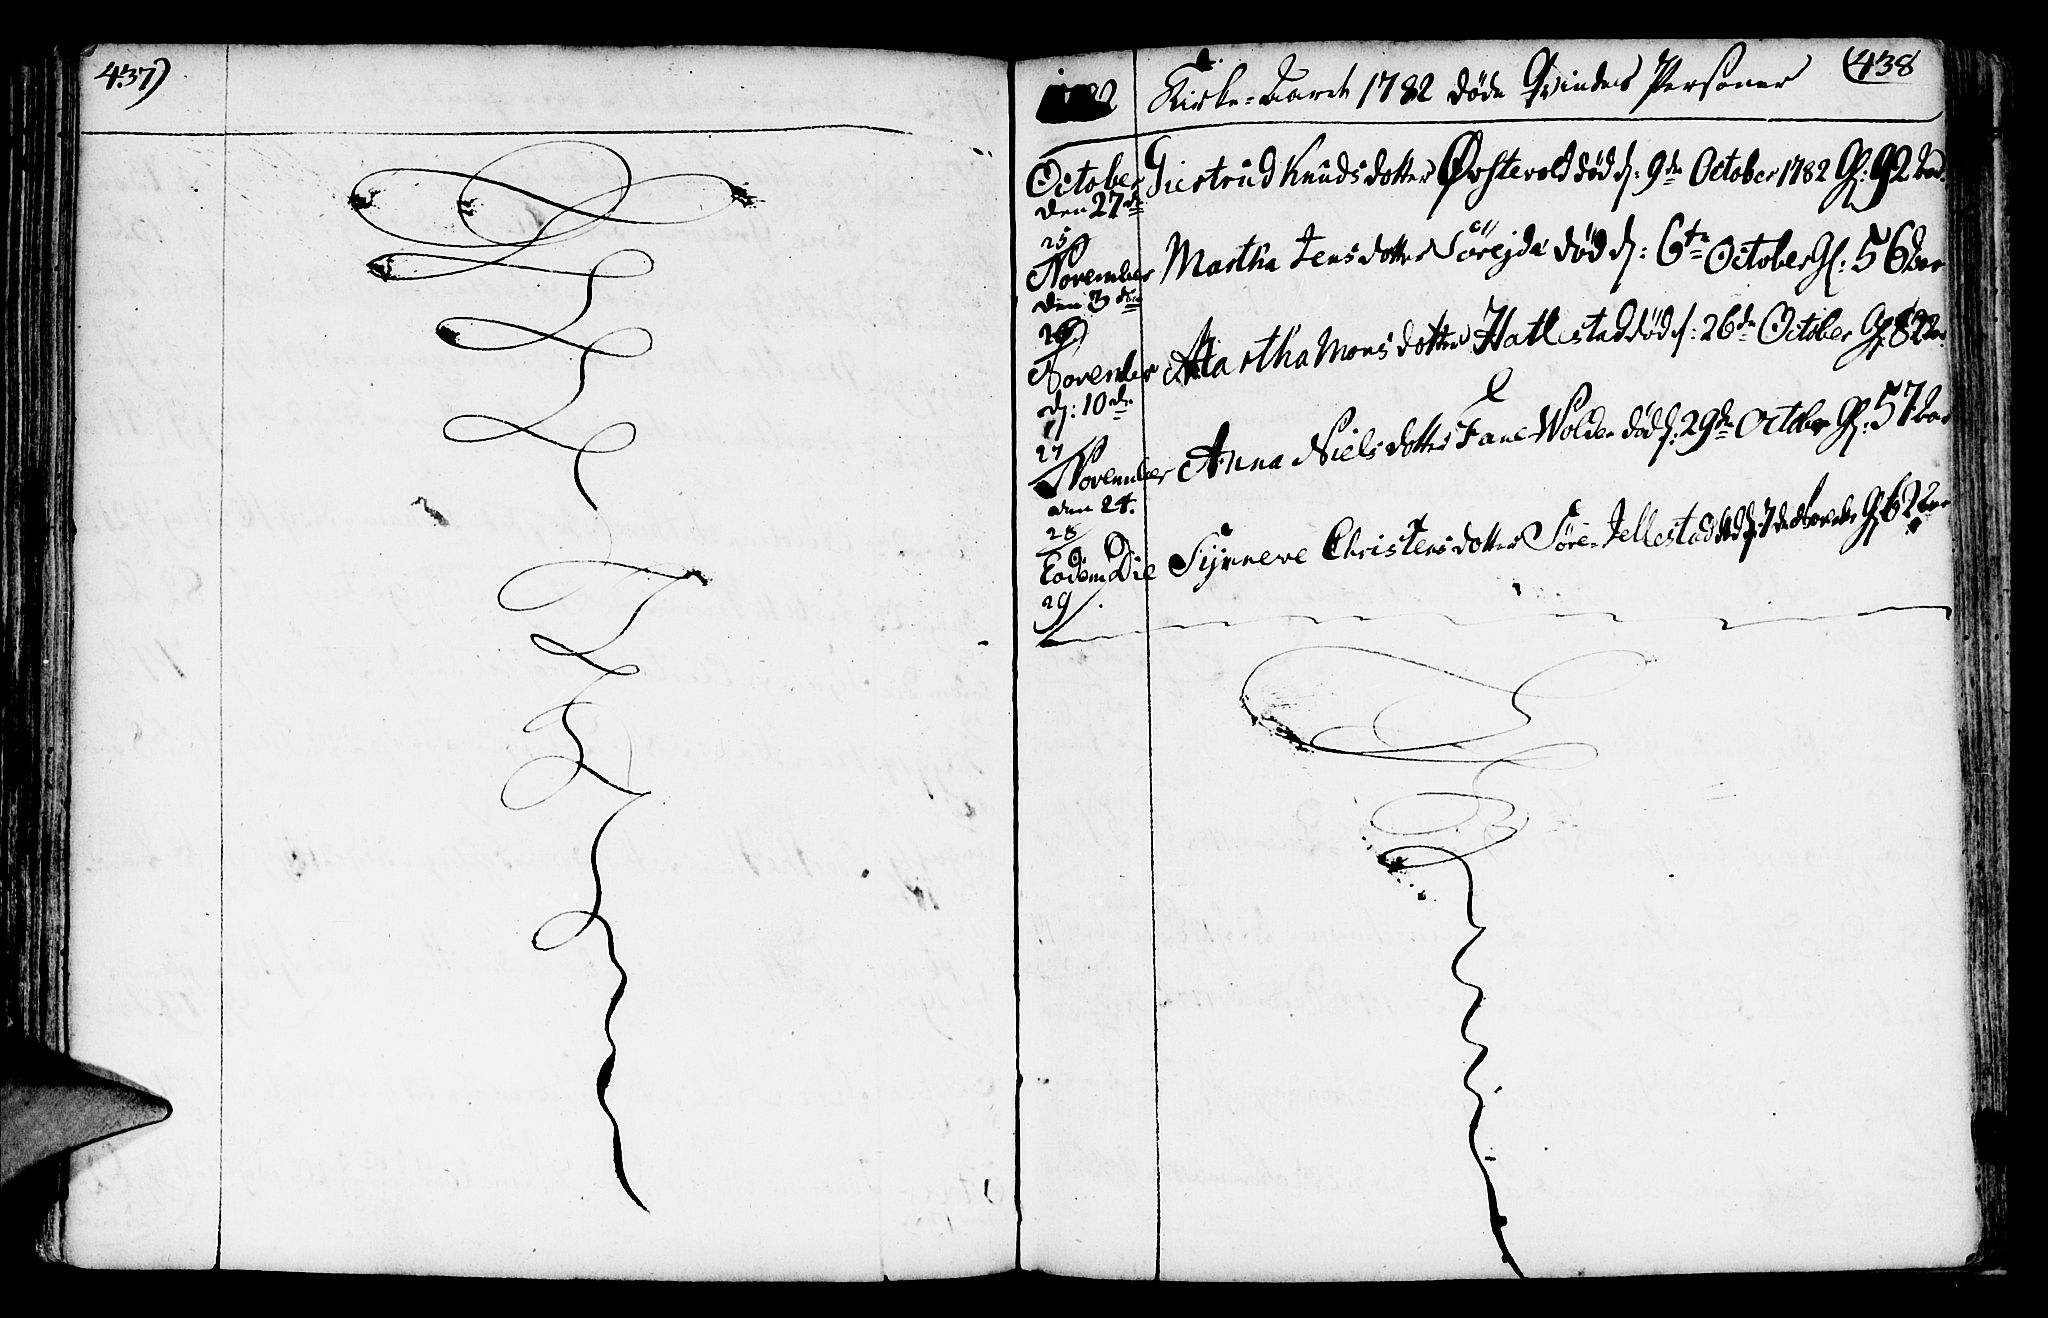 437)
1782 Kirke-Aaret 1782 døde Qvindes Personer (438
October Giertrud Knudsdotter Øvstevold død d: 9de October 1782 Gl: 92 Aar.
den 27de
25
November Martha Jensdotter Sörejde død d: 6te October Gl: 56 Aar
den 3die
26
November Martha Monsdotter Hatlestad død d: 26de October Gl: 82 Aar.
d: 10de
27
November Anna Nielsdotter Fane-Wolden død d: 29de October Gl: 57 Aar
den 24.
28
Eodem Die Synneve Christensdotter Søre-Jellestad død d: 7de Novembr Gl: 62 Aar
29